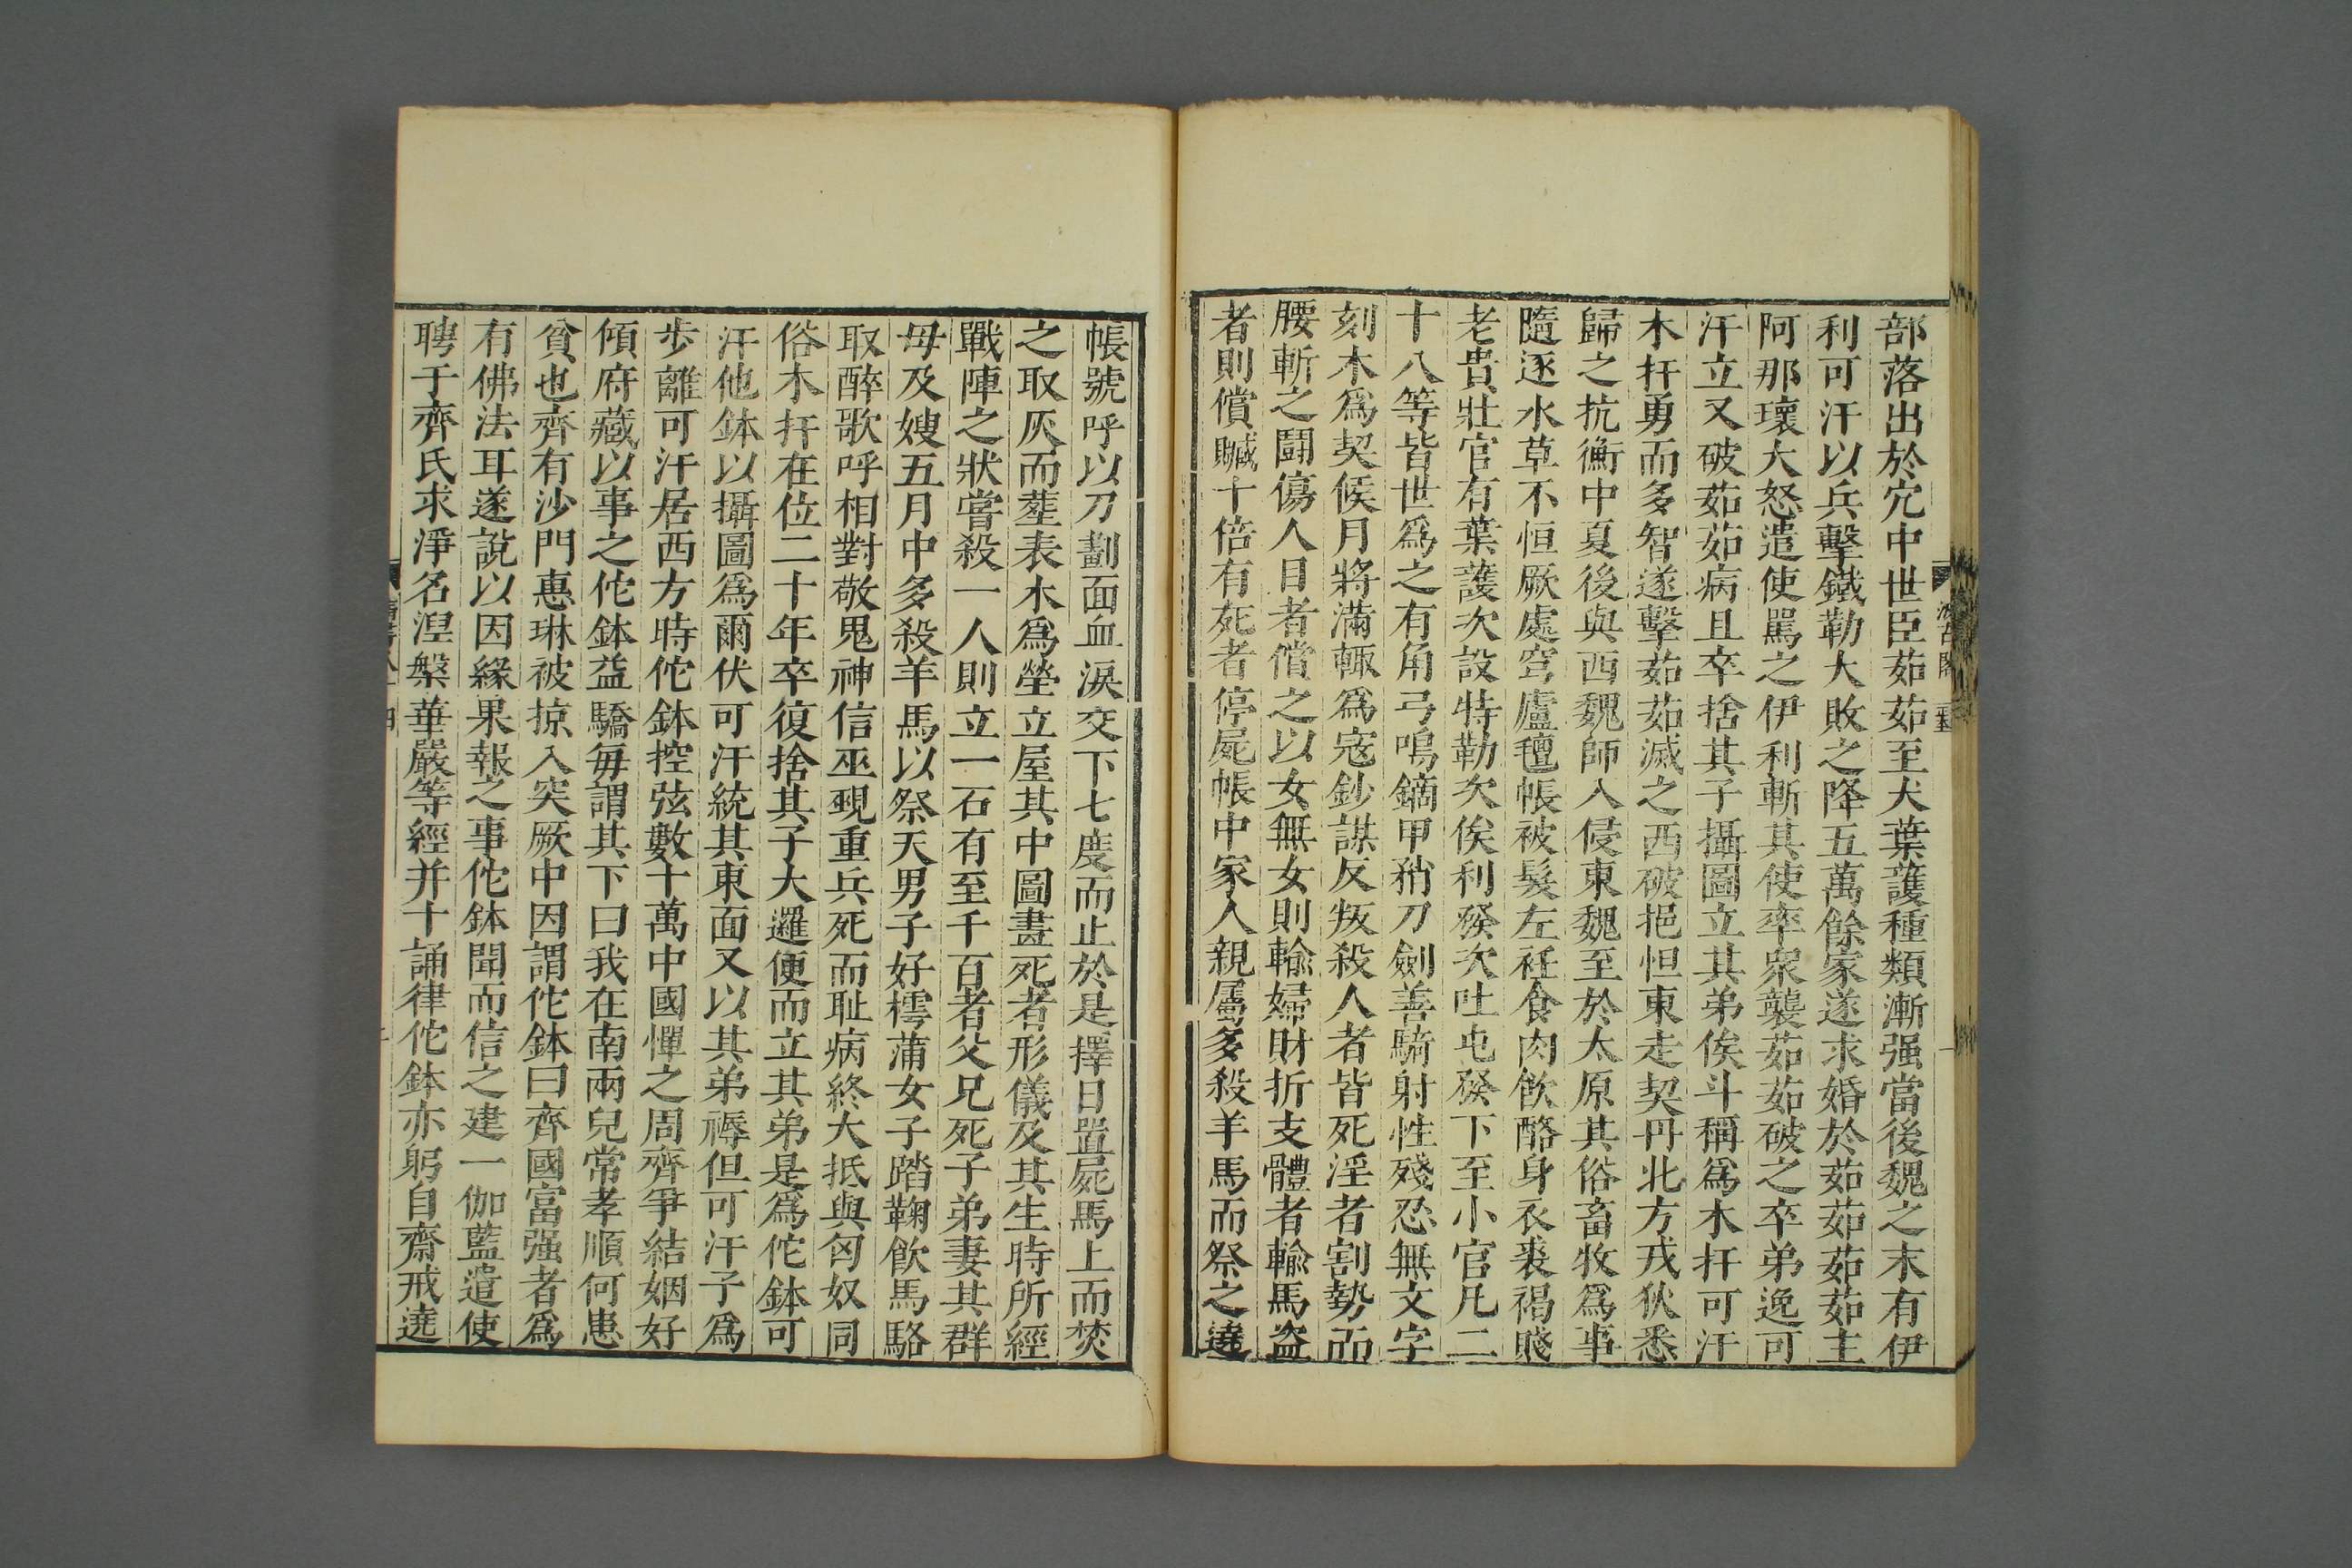 部落出於穴中世臣茹茹至大葉護種類漸强當後魏之末有伊
利可汗以兵擊鐵勒大敗之降五萬餘家遂求婚於茹茹茹茹主
阿那瓌大怒遣使罵之伊利斬其使率衆襲茹茹破之卒弟逸可
汗立又破茹茹病且卒捨其子攝圖立其弟俟斗稱爲木扞可汗
木扞勇而多智遂擊茹茹滅之西破挹怛東走契丹北方戎狄悉
歸之抗衡中夏後與西魏師入侵東魏至於太原其俗畜牧爲事
隨逐水草不恒厥處穹廬氊帳被髮左衽食肉飲酪身衣裘褐賤
老貴壯官有葉護次設特勒次俟利發次吐屯發下至小官凡二
十八等皆世爲之有角弓鳴鏑甲矟刀劍善騎射性殘忍無文字
刻木爲契候月將滿輒爲宼鈔謀反叛殺人者皆死淫者割勢而
腰斬之鬪傷人目者償之以女無女則輸婦財折支體者輸馬盜
者則償贓十倍有死者停屍帳中家人親屬多殺羊馬而祭之遶
汲古閣
帳號呼以刀劃面血淚交下七度而止於是擇日置屍馬上而焚
之取灰而葬表木爲塋立屋其中圖畫死者形儀及其生時所經
戰陣之狀嘗殺一人則立一石有至千百者父兄死子弟妻其群
母及嫂五月中多殺羊馬以祭天男子好樗蒲女子踏鞠飲馬駱
取醉歌呼相對敬鬼神信巫覡重兵死而耻病終大抵與匈奴同
俗木扞在位二十年卒復捨其子大邏便而立其弟是爲佗鉢可
汗他鉢以攝圖爲爾伏可汗統其東面又以其弟褥但可汗子爲
步離可汗居西方時佗鉢控弦數十萬中國憚之周齊爭結姻好
傾府藏以事之佗鉢益驕每謂其下曰我在南兩兒常孝順何患
貧也齊有沙門惠琳被掠入突厥中因謂佗鉢曰齊國富强者爲
有佛法耳遂說以因緣果報之事佗鉢聞而信之建一伽藍遣使
聘于齊氏求淨名涅槃華嚴等經并十誦律佗鉢亦躬自齋戒遶